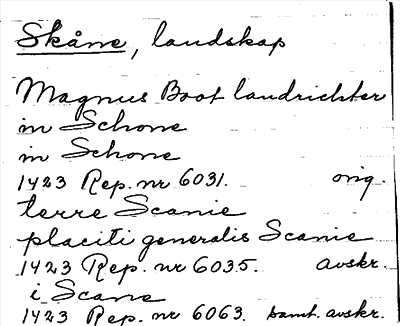 Skåne, landskap
Magnus Boot landrichter
in Schone
in Schone
1423 Rep. nr 6031. orig.
terre Scanie
placiti generalis Scanie
1423 Rep. nr 6035. avskr.
i Scane
1423 Rep. nr 6063. samt. avskr.